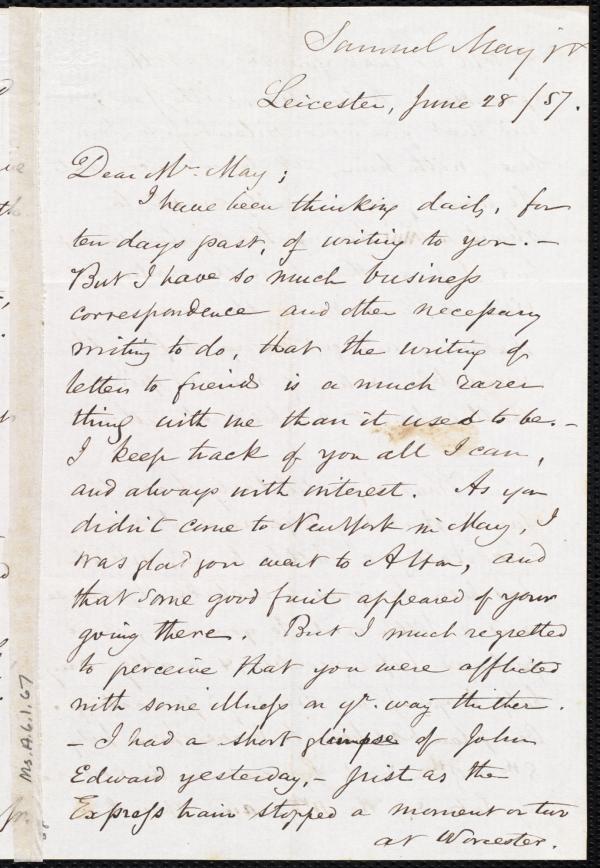 Samuel May jr
Leicester, June 28/57.
Dear Mr. May;
I have been thinking daily, for
ten days past, of writing to you. –
But I have so much business
correspondence and other necessary
writing to do, that the writing of
letters to friends is a much rarer
thing with me than it used to be. –
I keep track of you all I can,
and always with interest. As you
didn't come to New York in May, I
was glad you went to Alton, and
that some good fruit appeared of your
going there. But I much regretted
to perceive that you were afflicted
with some illness on yr. way thither.
– I had a short glimpse of John
Edward yesterday, – just as the
Express train stopped a moment or two
at Worcester.
Ms. A.6.1.67